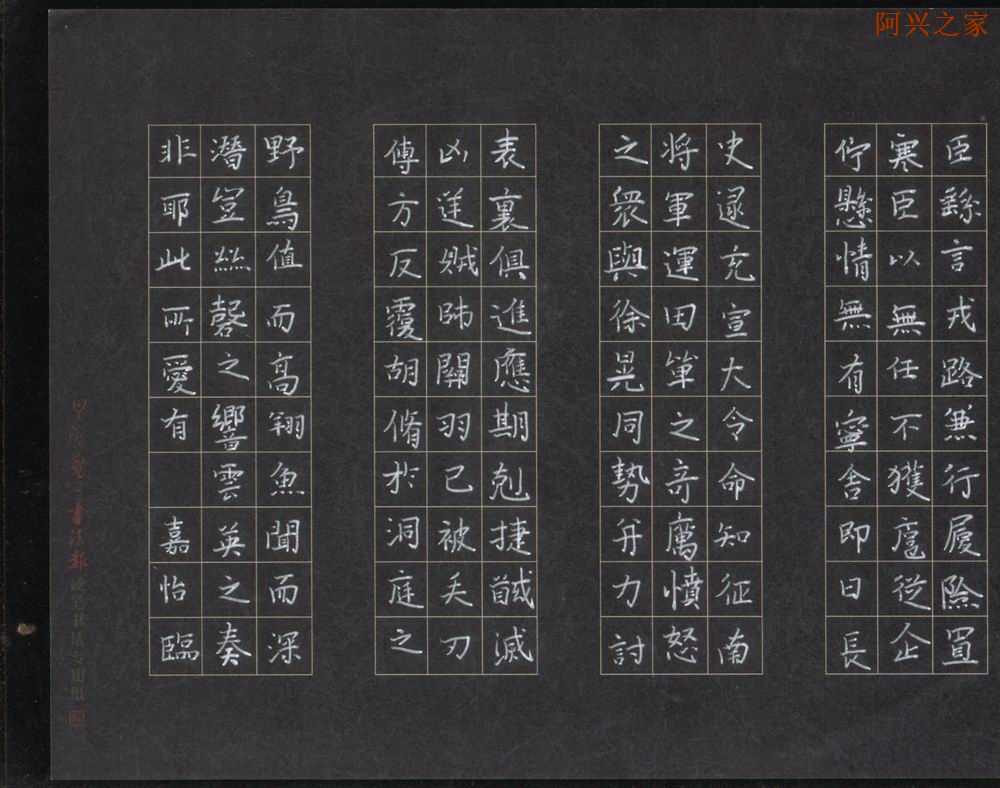 阿兴之家
臣繇言戎路兼行履險冒
寒臣以無任不獲扈從企
佇懸情無有寧舍即日長
史逯充宣大令命知征南
將軍運田單之奇厲憤怒
之眾與徐晃同勢并力討
表裏俱進應期剋捷馘滅
凶逆賊帥關羽已被矢刃
傅方反覆胡脩於洞庭之
野鳥值而高翔魚聞而深
潛豈絲磬之響雲英之奏
非耶此所愛有 嘉怡臨